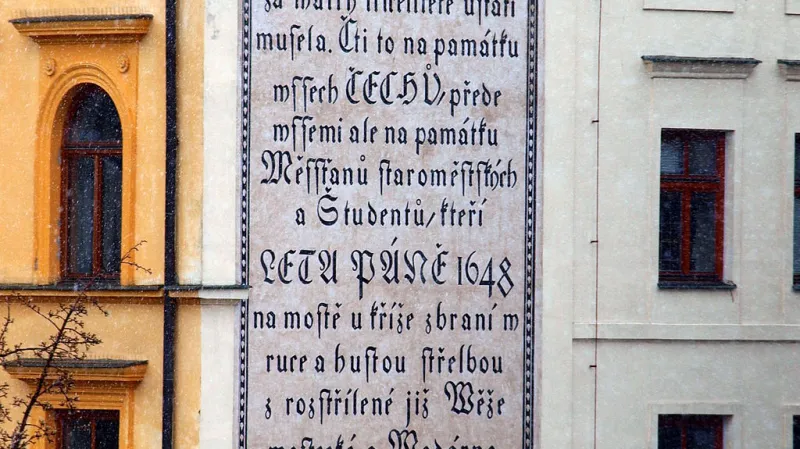 musela. Čti to na památku
wſſech ČECHŮ, přede
wſſemi ale na památku
Měſſťanů ſtaroměſtſkých
a Študentů, kteří
LETA PÁNĚ 1648
na moſtě u kříže zbraní w
ruce a huſtou ſtřelbou
z rozſtřílené již Wěže